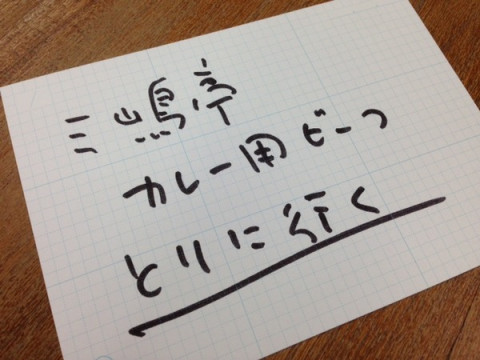 三嶋亭
カレー用ビーフ
とりに行く